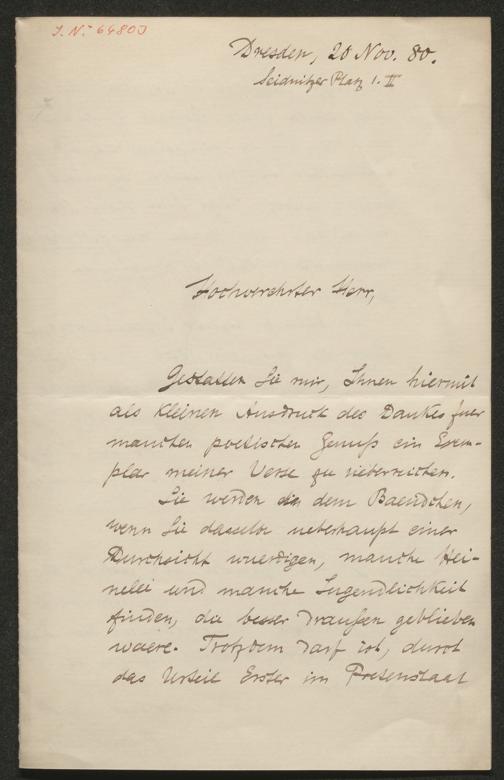 J. N. 64803
Dresden, 20 Nov. 80.
Seidnitzer Platz 1. II
Hochverehrter Herr,
Gestatten Sie mir, Ihnen hiermit
als kleinen Ausdruck des Dankes fuer
manchen poetischen Genuß ein Exem-
plar meiner Verse zu ueberreichen.
Sie werden in dem Baendchen,
wenn Sie dasselbe ueberhaupt einer
Durchsicht wuerdigen, manche Hei-
nelei und manche Jugendlichkeit
finden, die besser draußen geblieben
waere. Trotzdem darf ich, durch
das Urteil Erster im Poetenstaat